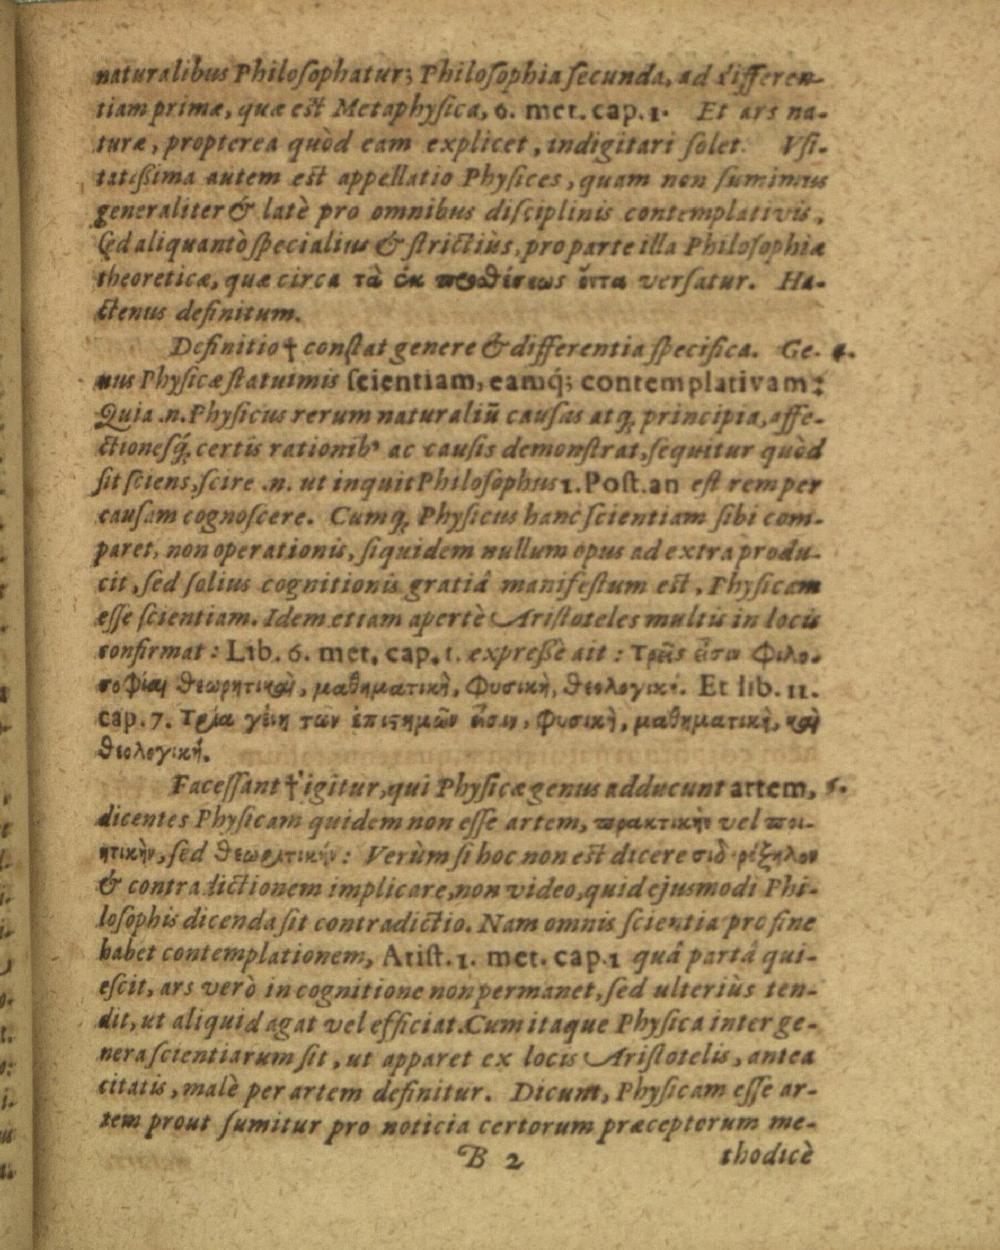 naturalibus Philoſophatur; Philoſophia ſecunda, ad differen-
tiam primæ, quæ est Metaphyſica, 6. met. cap. 1. Et ars na-
turæ, propterea quòd eam explicet, indigitari ſolet. Vſi-
tatißima autem est appellatio Phyſices, quam non ſumimus
generaliter & latè pro omnibus diſciplinis contemplativis,
ſed aliquantò ſpecialius & ſtrictiùs, pro parte illa Philoſophiæ
theoreticæ, quæ circa τὰ ἐκ ὄντα verſatur. Ha-
ctenus definitum.
Definitio † conſtat genere & differentia ſpecifica. Ge- 4.
nus Phyſicæ ſtatuimus ſcientiam, eamq́; contemplativam:
Quia .n. Phyſicus rerum naturaliū cauſas atq; principia, affe-
ctioneſq́; certis rationib⁹ ac cauſis demonſtrat, ſequitur quòd
ſit ſciens, ſcire .n. ut inquit Philoſophus 1. Poſt. an est rem per
cauſam cognoſcere. Cumq; Phyſicus hanc ſcientiam ſibi com-
paret, non operationis, ſiquidem nullum opus ad extra produ-
cit, ſed ſolius cognitionis gratiâ manifeſtum est, Phyſicam
eſſe ſcientiam. Idem etiam apertè Ariſtoteles multis in locis
confirmat: Lib. 6. met. cap. 1. expreßè ait: Τρεῖς εἶσιν Φιλο-
σοφίαι θεωρητικαὶ, μαθηματικὴ, Φυσικὴ, θεολογικὴ. Et lib. 11.
cap. 7. Τρία γένη τῶν ἐπιστημῶν εἶσιν, Φυσικὴ, μαθηματικὴ, καὶ
θεολογική.
Faceſſant † igitur, qui Phyſicæ genus adducunt artem, 5.
dicentes Phyſicam quidem non eſſe artem, πρακτικὴν vel ποι-
ητικὴν, ſed θεωρητικήν: Verùm ſi hoc non est dicere
& contradictionem implicare, non video, quid ejusmodi Phi-
loſophis dicenda ſit contradictio. Nam omnis ſcientia pro fine
habet contemplationem, Ariſt. 1. met. cap. 1 quâ partâ qui-
eſcit, ars verò in cognitione non permanet, ſed ulteriùs ten-
dit, ut aliquid agat vel efficiat. Cum itaque Phyſica inter ge-
nera ſcientiarum ſit, ut apparet ex locis Ariſtotelis, antea
citatis, malè per artem definitur. Dicunt, Phyſicam eſſe ar-
tem prout ſumitur pro noticia certorum præceptorum me-
B 2 thodicè